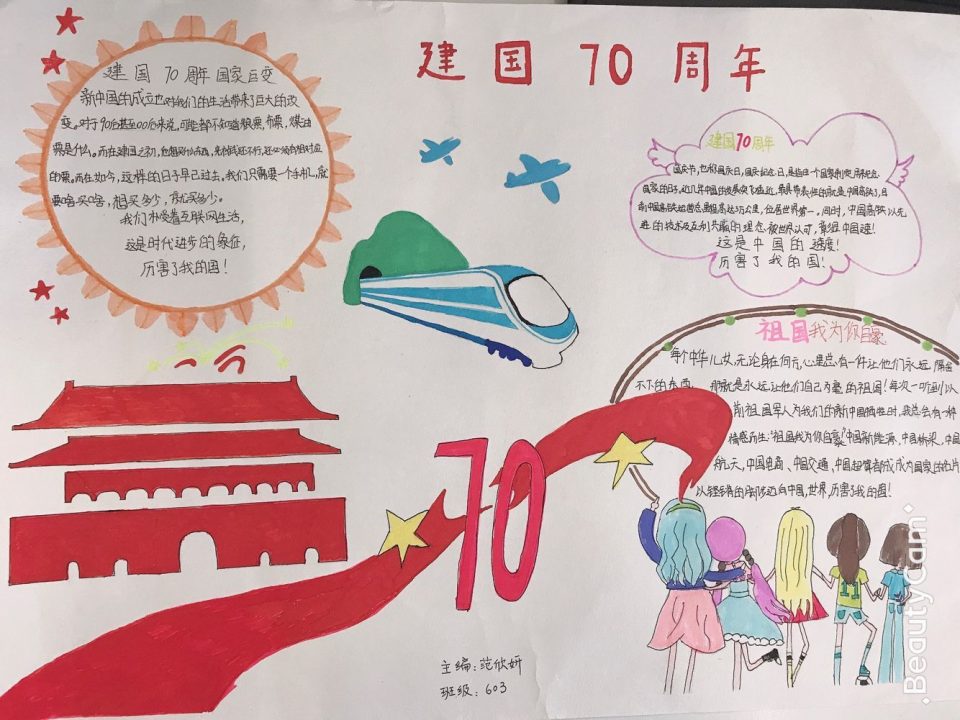 建国70周年
建国70周年国家巨变
新中国的成立也对我们的生活带来了巨大的改
变。对于90后甚至00后来说,可能都不知道粮票,布票,煤油
票是什么。而在建国之初,
的票。而在如今,这样的日子早已过去。我们只需要一个手机,就
要啥买啥,想买多少,就买多少。
我们
享受着互联网生活,
这是时代进步的象征,
厉害了我的国!
建国70周年
国庆节,也称国庆日,国庆纪念日,是指由一个国家制定
国家的日子。近几年中国的发展突飞猛进,最具带表性的就是中国高铁了,目
前中国高铁运营总里程高达3万公里,位居世界第一,同时,中国高铁以先
进的技术及互利共赢的理念被世界认可,
这是中国的速度!
厉害了我的国!
祖国我为你自豪
每个中华儿女,无论身在何方,心里总有一件让他们永远
不下的东西,那就是永远让他们自己
的祖国!每次一听到以
前祖国军人为我们的新中国牺牲时,我总会有一种
情感而生:“祖国我为你自豪!”中国新能源、中国桥梁、中国
航天、中国电商、中国交通、中国超算都成为国家的名片
以
的脚步迈向中国,世界,厉害了我的国!
70
11
主编:范欣妍
班级:603
·BeautyCam·